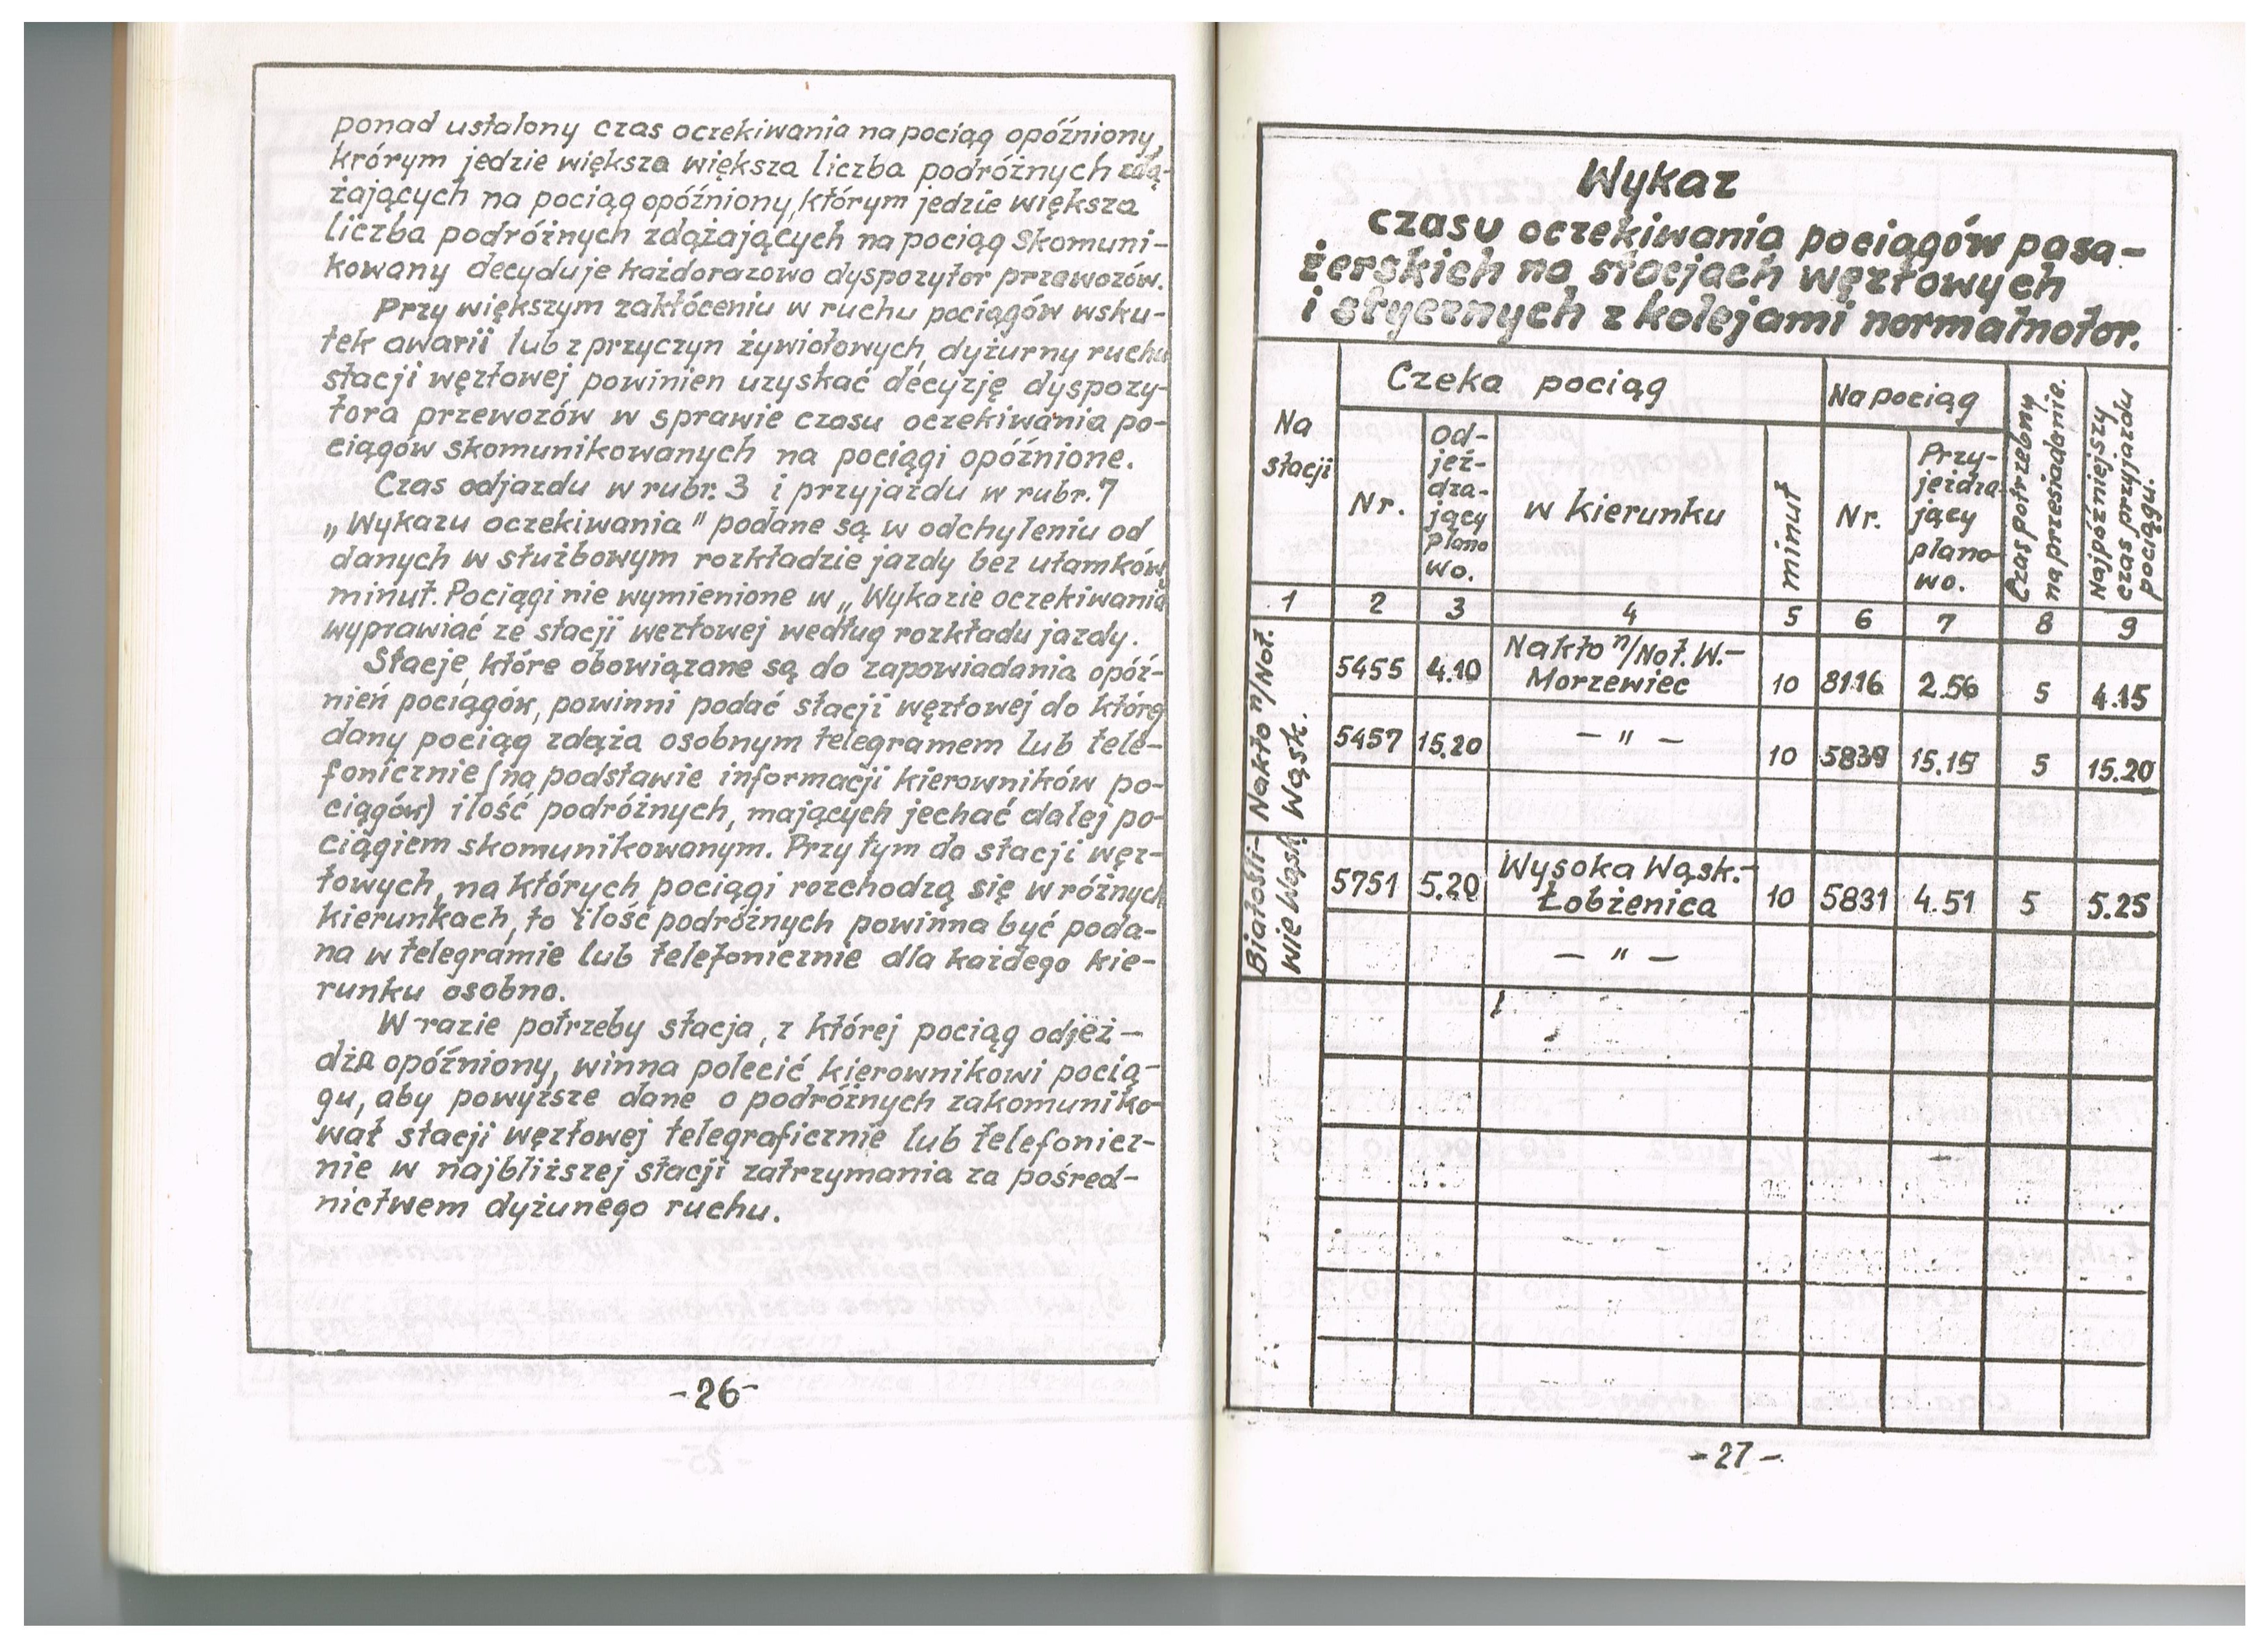 ponad ustalony czas oczekiwania na pociąg opóźniony,
krórym jedzie większa większa liczba podróżnych zdą-
żających na pociąg opóźniony, którym jedzie większa
liczba podróżnych zdążających na pociąg skomuni-
kowany decyduje każdorazowo dyspozytor przewozów.
Przy większym zakłóceniu w ruchu pociągów wsku-
tek awarii lub z przyczyn żywiołowych, dyżurny ruchu
stacji węzłowej powinien uzyskać decyzję dyspozy-
tora przewozów w sprawie czasu oczekiwania po-
ciągów skomunikowanych na pociągi opóźnione.
Czas odjazdu w rubr. 3 i przyjazdu w rubr. 7
„Wykazu oczekiwania" podane są w odchyleniu od
danych w służbowym rozkładzie jazdy bez ułamków
minut. Pociągi nie wymienione w „Wykazie oczekiwania
wyprawiać ze stacji węzłowej według rozkładu jazdy.
Stacje, które obowiązane są do zapowiadania opóź-
nień pociągów, powinni podać stacji węzłowej do której
dany pociąg zdąża osobnym telegramem lub tele-
fonicznie (na podstawie informacji kierowników po-
ciągów) ilość podróżnych, mających jechać dalej po-
ciągiem skomunikowanym. Przy tym do stacji węz-
łowych, na których pociągi rozchodzą się w różnych
kierunkach, to ilość podróżnych powinna być poda-
na w telegramie lub telefonicznie dla każdego kie-
runku osobno.
W razie potrzeby stacja, z której pociąg odjeż-
dża opóźniony, winna polecić kierownikowi pocią-
gu, aby powyższe dane o podróżnych zakomuniko-
wał stacji węzłowej telegraficznie lub telefonicz-
nie w najbliższej stacji zatrzymania za pośred-
nictwem dyżunego ruchu.
-26-
Wykaz
czasu oczekiwania pociągów pasa-
żerskich na stacjach węzłowych
i stycznych z kolejami normalnotor.
Na stacji
Czeka pociąg
Na pociąg
Czas potrzebny na przesiadanie.
Najpóźniejszy czas przyjazdu pociągu.
Nr.
Od-
jeż-
dża-
jący
plano
wo.
w kierunku
minut
Nr.
Przy-
jeżdża-
jący
plano-
wo.
1 2 3 4 5 6 7 8 9
Nakło n/Not. Wąsk.
5455 4.10 Nakło n/Not. W.-
Morzewiec 10 8116 2.56 5 4.15
5457 15.20 — " — 10 5839 15.15 5 15.20
Białośli-
wie Wąsk.
5751 5.20 Wysoka Wąsk.-
Łobżenica 10 5831 4.51 5 5.25
— " —
-27-